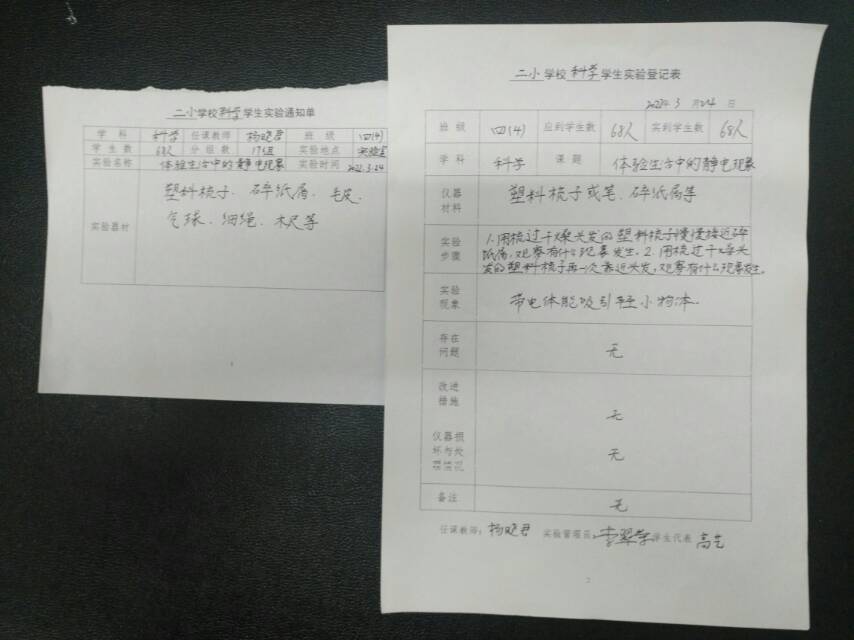 二小学校科学学生实验通知单
学科 科学 任课教师 杨晓君 班级 四(4)
学生数 68人 分组数 17组 实验地点 实验室
实验名称 体验生活中的静电现象 实验时间 2022.3.24
实验器材 塑料梳子、碎纸屑、毛皮、
气球、细绳、木尺等
二小学校科学学生实验登记表
3月24日
班级 四(4) 应到学生数 68人 实到学生数 68人
学科 科学 课题 体验生活中的静电现象
仪器材料 塑料梳子或笔、碎纸屑等
实验步骤 1.用梳过干燥头发的塑料梳子慢慢接近碎
纸屑,观察有什么现象发生。2.用梳过干燥头
发的塑料梳子再一次靠近头发,观察有什么现象发生。
实验现象 带电体能吸引轻小物体.
存在问题 无
改进措施 无
仪器损坏与处理情况 无
备注 无
任课教师:杨晓君 实验管理员: 学生代表